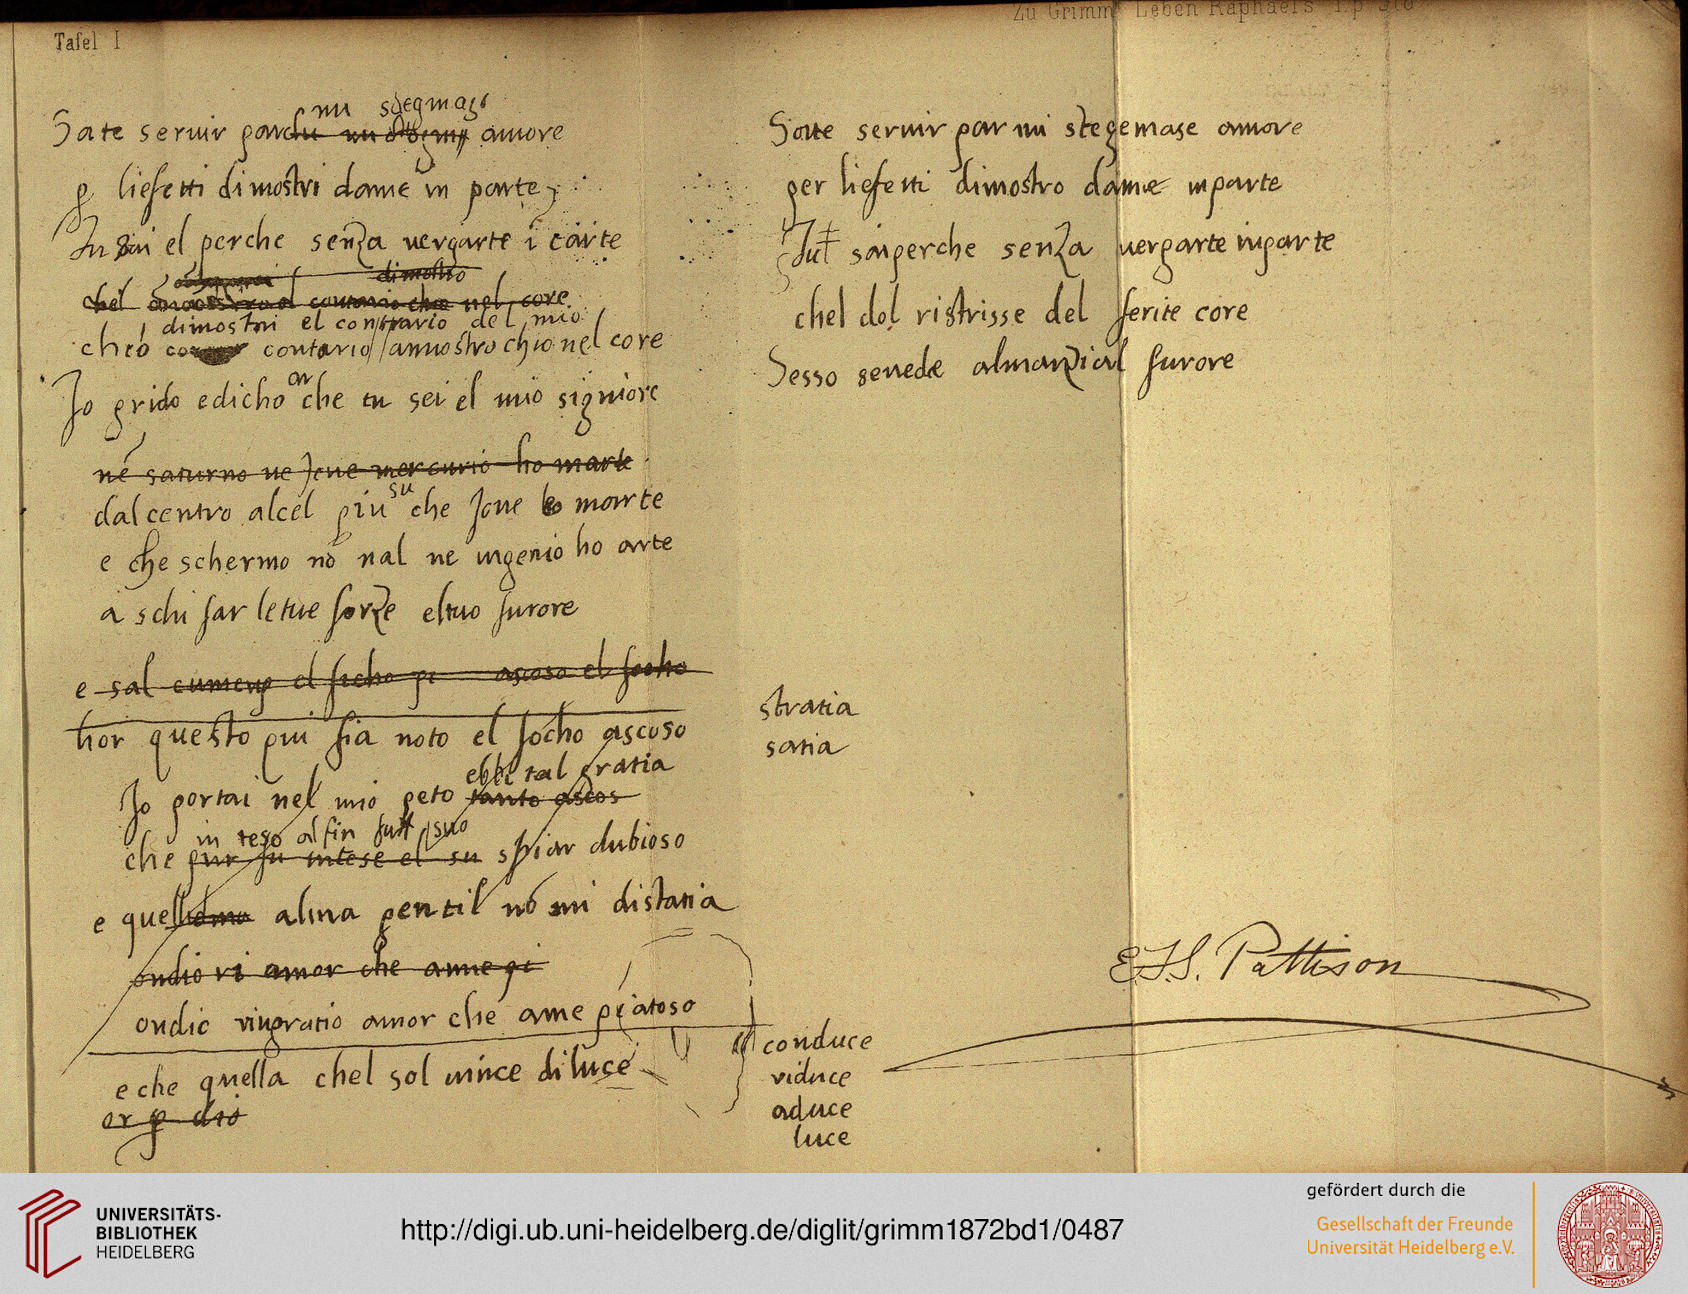 Zu Grimm Leben Raphaels I. p 310
Tafel I
mi sdegmasi
Sate servir par amore
p liefetti dimostri dame in parte
Tu sai el perche senza vergarte i carte
dimostro
chel contrario che nel core
dimostri el contrario del mio
cheó contario amostro chio nel core
ar
Io grido edicho che tu sei el mio signiore
né saturno ne Jove mercurio ho marte
su
dal centro al cel piu che Jove ho marte
e che schermo nō val ne ingenio ho arte
a schifar le tue forze el tuo furore
e sal el ficho pi ascoso el focho
hor questo piu fia noto el focho ascoso
ebbi tal gratia
Io portai nel mio peto tanto ascos
in teso alfin suo
che pur fu intese el su spiar dubioso
e quell alma gentil nō mi distatia
ondio ri amor che ame pi
ondio ringratio amor che ame piatoso
e che quella chel sol vince di luce
or p dio
Sate servir par mi stegemase amore
per liefetti dimostro dame inparte
Tu saiperche senza vergarte inparte
chel dol ristrisse del ferite core
Sesso sevede almarzial furore
stratia
satia
conduce
riduce
aduce
luce
E.F.S. Pattison
UNIVERSITÄTS-
BIBLIOTHEK
HEIDELBERG
http://digi.ub.uni-heidelberg.de/diglit/grimm1872bd1/0487
gefördert durch die
Gesellschaft der Freunde
Universität Heidelberg e.V.